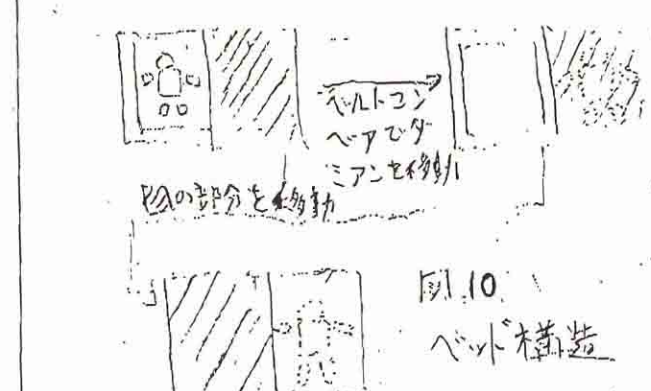 ベルトコン
ベアでダ
ミアンを移動
の部分を移動
図.10
ベッド構造